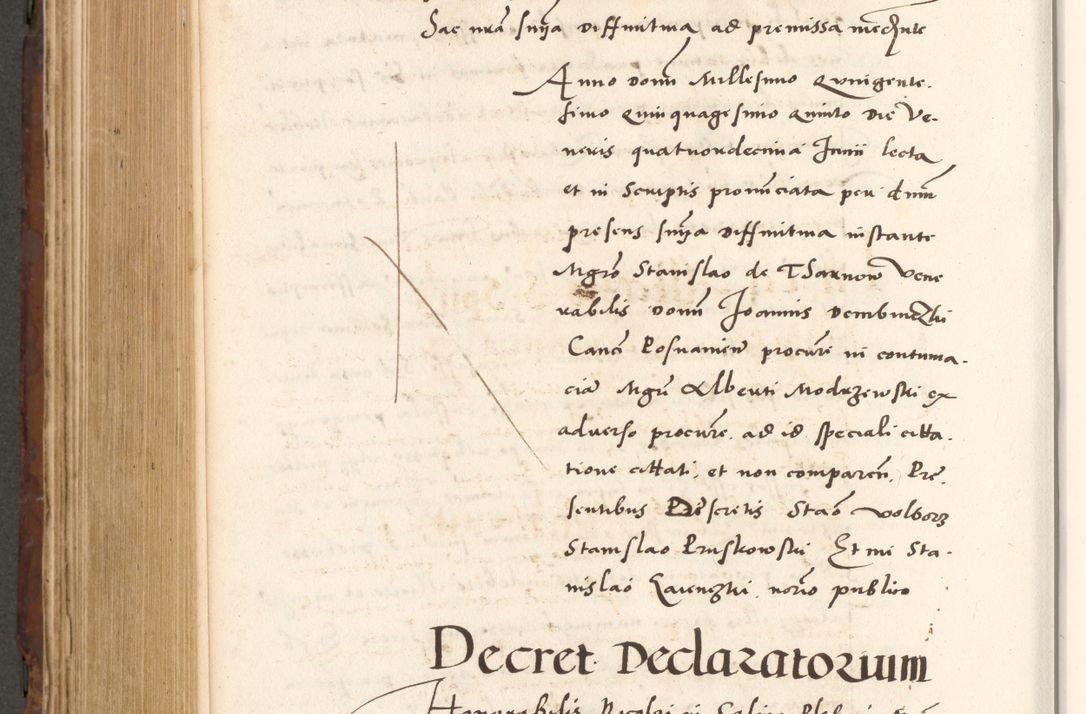 Hac nrã sniã diffinitiva ad premissa mediñte
Anno domi Millesimo Quingente.
simo quinquagesimo quinto die Ve-
neris quatuordecima Junii lecta
et in scriptis pronũciata per dnũ
presens sniã diffinitiva instante
Mgrõ Stanislao de Tharnow Vene
rabilis domi Joannis Dembinczki
Canci Posnanien procure in contuma-
ciã Mgri Alberti Modrzewski ex
adverso procure. ad id speciali citta.
tione cittati, et non comparen. Pre.
sentibus Discretis Stao Wolborz
Stanislao Pruskowski Et mi Sta-
nislao norio publico
Decret Declaratorium
Honorabilis Nicolai in